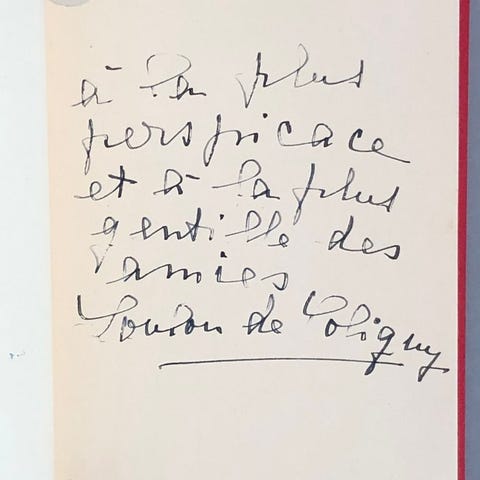 à la plus
perspicace
et à la plus
gentille des
amies
Loudon de Coligny